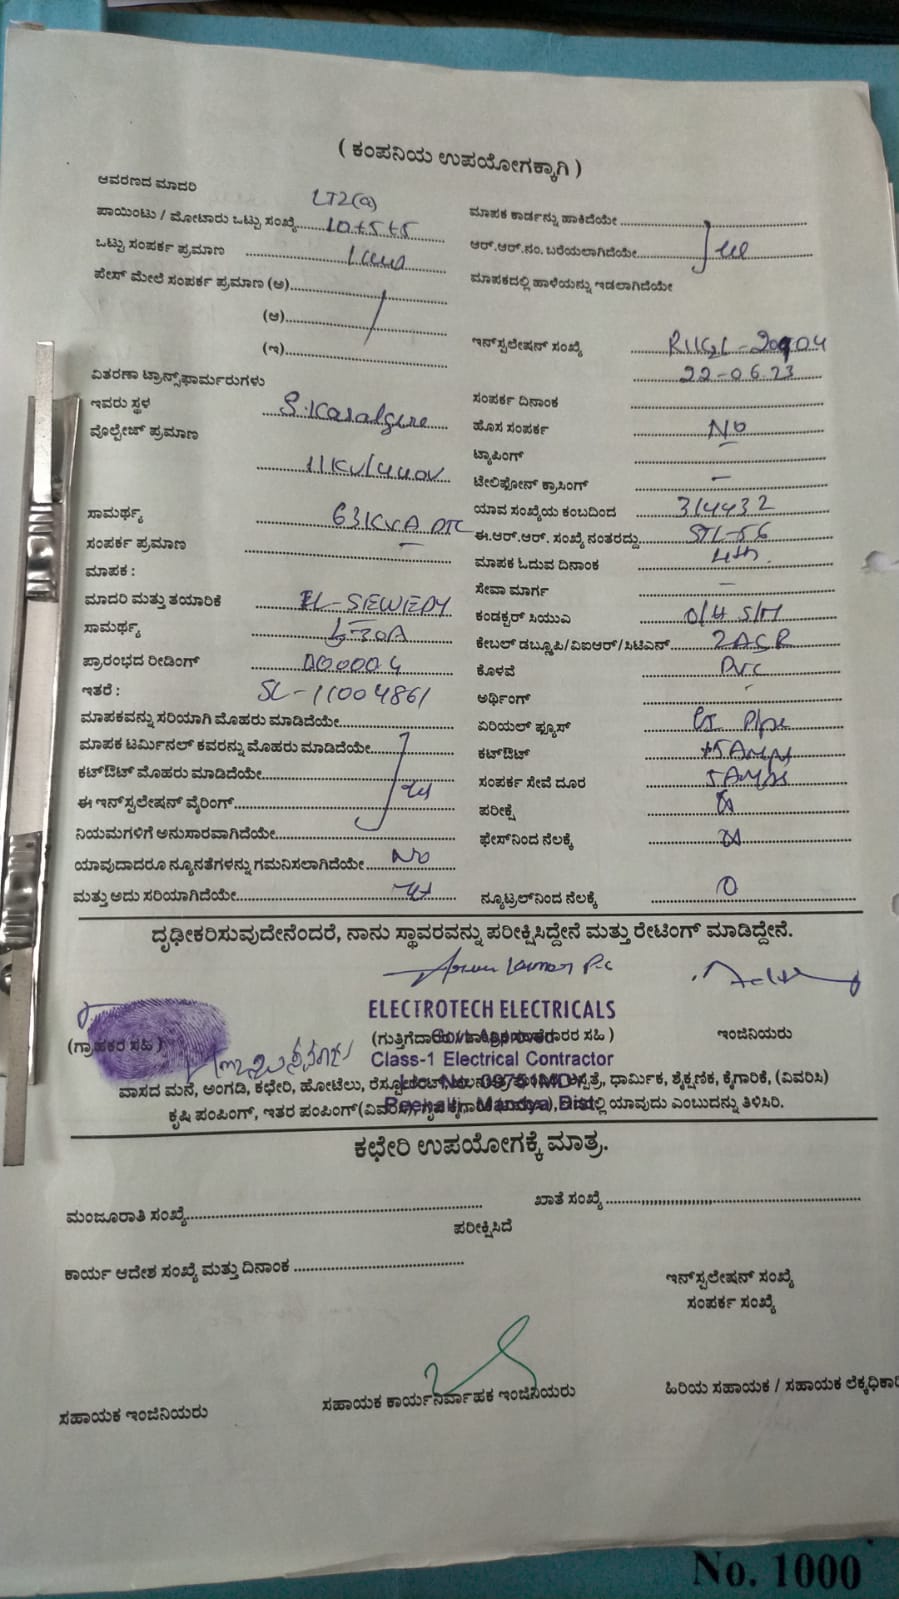 ( ಕಂಪನಿಯ ಉಪಯೋಗಕ್ಕಾಗಿ )
ಆವರಣದ ಮಾದರಿ LT2(a)
ಪಾಯಿಂಟು / ಮೋಟಾರು ಒಟ್ಟು ಸಂಖ್ಯೆ 10+5+5
ಒಟ್ಟು ಸಂಪರ್ಕ ಪ್ರಮಾಣ
ಪೇಸ್ ಮೇಲೆ ಸಂಪರ್ಕ ಪ್ರಮಾಣ (ಅ)
(ಆ)
(ಇ)
ವಿತರಣಾ ಟ್ರಾನ್ಸ್‌ಫಾರ್ಮರುಗಳು
ಇವರು ಸ್ಥಳ
ವೊಲ್ಟೇಜ್ ಪ್ರಮಾಣ
11KV/440V
ಸಾಮರ್ಥ್ಯ 63KVA DTC
ಸಂಪರ್ಕ ಪ್ರಮಾಣ –
ಮಾಪಕ :
ಮಾದರಿ ಮತ್ತು ತಯಾರಿಕೆ
ಸಾಮರ್ಥ್ಯ 5-30A
ಪ್ರಾರಂಭದ ರೀಡಿಂಗ್ 000004
ಇತರೆ : SL-11004861
ಮಾಪಕವನ್ನು ಸರಿಯಾಗಿ ಮೊಹರು ಮಾಡಿದೆಯೇ
ಮಾಪಕ ಟರ್ಮಿನಲ್ ಕವರನ್ನು ಮೊಹರು ಮಾಡಿದೆಯೇ
ಕಟ್‌ಔಟ್ ಮೊಹರು ಮಾಡಿದೆಯೇ
ಈ ಇನ್‌ಸ್ಪಲೇಷನ್ ವೈರಿಂಗ್
ನಿಯಮಗಳಿಗೆ ಅನುಸಾರವಾಗಿದೆಯೇ
ಯಾವುದಾದರೂ ನ್ಯೂನತೆಗಳನ್ನು ಗಮನಿಸಲಾಗಿದೆಯೇ No
ಮತ್ತು ಅದು ಸರಿಯಾಗಿದೆಯೇ
ಮಾಪಕ ಕಾರ್ಡನ್ನು ಹಾಕಿದೆಯೇ
ಆರ್.ಆರ್.ನಂ. ಬರೆಯಲಾಗಿದೆಯೇ
ಮಾಪಕದಲ್ಲಿ ಹಾಳೆಯನ್ನು ಇಡಲಾಗಿದೆಯೇ
ಇನ್‌ಸ್ಪಲೇಷನ್ ಸಂಖ್ಯೆ
22-06-23
ಸಂಪರ್ಕ ದಿನಾಂಕ
ಹೊಸ ಸಂಪರ್ಕ No
ಟ್ಯಾಪಿಂಗ್
ಟೇಲಿಫೋನ್ ಕ್ರಾಸಿಂಗ್ –
ಯಾವ ಸಂಖ್ಯೆಯ ಕಂಬದಿಂದ 314432
ಈ.ಆರ್.ಆರ್. ಸಂಖ್ಯೆ ನಂತರದ್ದು
ಮಾಪಕ ಓದುವ ದಿನಾಂಕ 4th.
ಸೇವಾ ಮಾರ್ಗ –
ಕಂಡಕ್ಟರ್ ಸಿಯುಎ O/H S/M
ಕೇಬಲ್ ಡಬ್ಲೂಪಿ/ವಿಐಆರ್/ಸಿಟಿಎಸ್
ಕೊಳವೆ PVC
ಅರ್ಥಿಂಗ್
ಏರಿಯಲ್ ಫ್ಯೂಸ್ GI Pipe
ಕಟ್‌ಔಟ್
ಸಂಪರ್ಕ ಸೇವೆ ದೂರ 5 Amps
ಪರೀಕ್ಷೆ
ಫೇಸ್‌ನಿಂದ ನೆಲಕ್ಕೆ
ನ್ಯೂಟ್ರಲ್‌ನಿಂದ ನೆಲಕ್ಕೆ 0
ದೃಢೀಕರಿಸುವುದೇನೆಂದರೆ, ನಾನು ಸ್ಥಾವರವನ್ನು ಪರೀಕ್ಷಿಸಿದ್ದೇನೆ ಮತ್ತು ರೇಟಿಂಗ್ ಮಾಡಿದ್ದೇನೆ.
ELECTROTECH ELECTRICALS
(ಗ್ರಾಹಕರ ಸಹಿ ) ಇಂಜಿನಿಯರು
Class-1 Electrical Contractor
ವಾಸದ ಮನೆ, ಅಂಗಡಿ, ಕಛೇರಿ, ಹೋಟೆಲು, ಧಾರ್ಮಿಕ, ಶೈಕ್ಷಣಿಕ, ಕೈಗಾರಿಕೆ, (ವಿವರಿಸಿ)
ಕೃಷಿ ಪಂಪಿಂಗ್, ಇತರ ಪಂಪಿಂಗ್ Mandya Dist. ಯಾವುದು ಎಂಬುದನ್ನು ತಿಳಿಸಿರಿ.
ಕಛೇರಿ ಉಪಯೋಗಕ್ಕೆ ಮಾತ್ರ.
ಮಂಜೂರಾತಿ ಸಂಖ್ಯೆ ಖಾತೆ ಸಂಖ್ಯೆ
ಪರೀಕ್ಷಿಸಿದೆ
ಕಾರ್ಯ ಆದೇಶ ಸಂಖ್ಯೆ ಮತ್ತು ದಿನಾಂಕ
ಇನ್‌ಸ್ಪಲೇಷನ್ ಸಂಖ್ಯೆ
ಸಂಪರ್ಕ ಸಂಖ್ಯೆ
ಸಹಾಯಕ ಇಂಜಿನಿಯರು ಸಹಾಯಕ ಕಾರ್ಯನಿರ್ವಾಹಕ ಇಂಜಿನಿಯರು ಹಿರಿಯ ಸಹಾಯಕ / ಸಹಾಯಕ
No. 1000